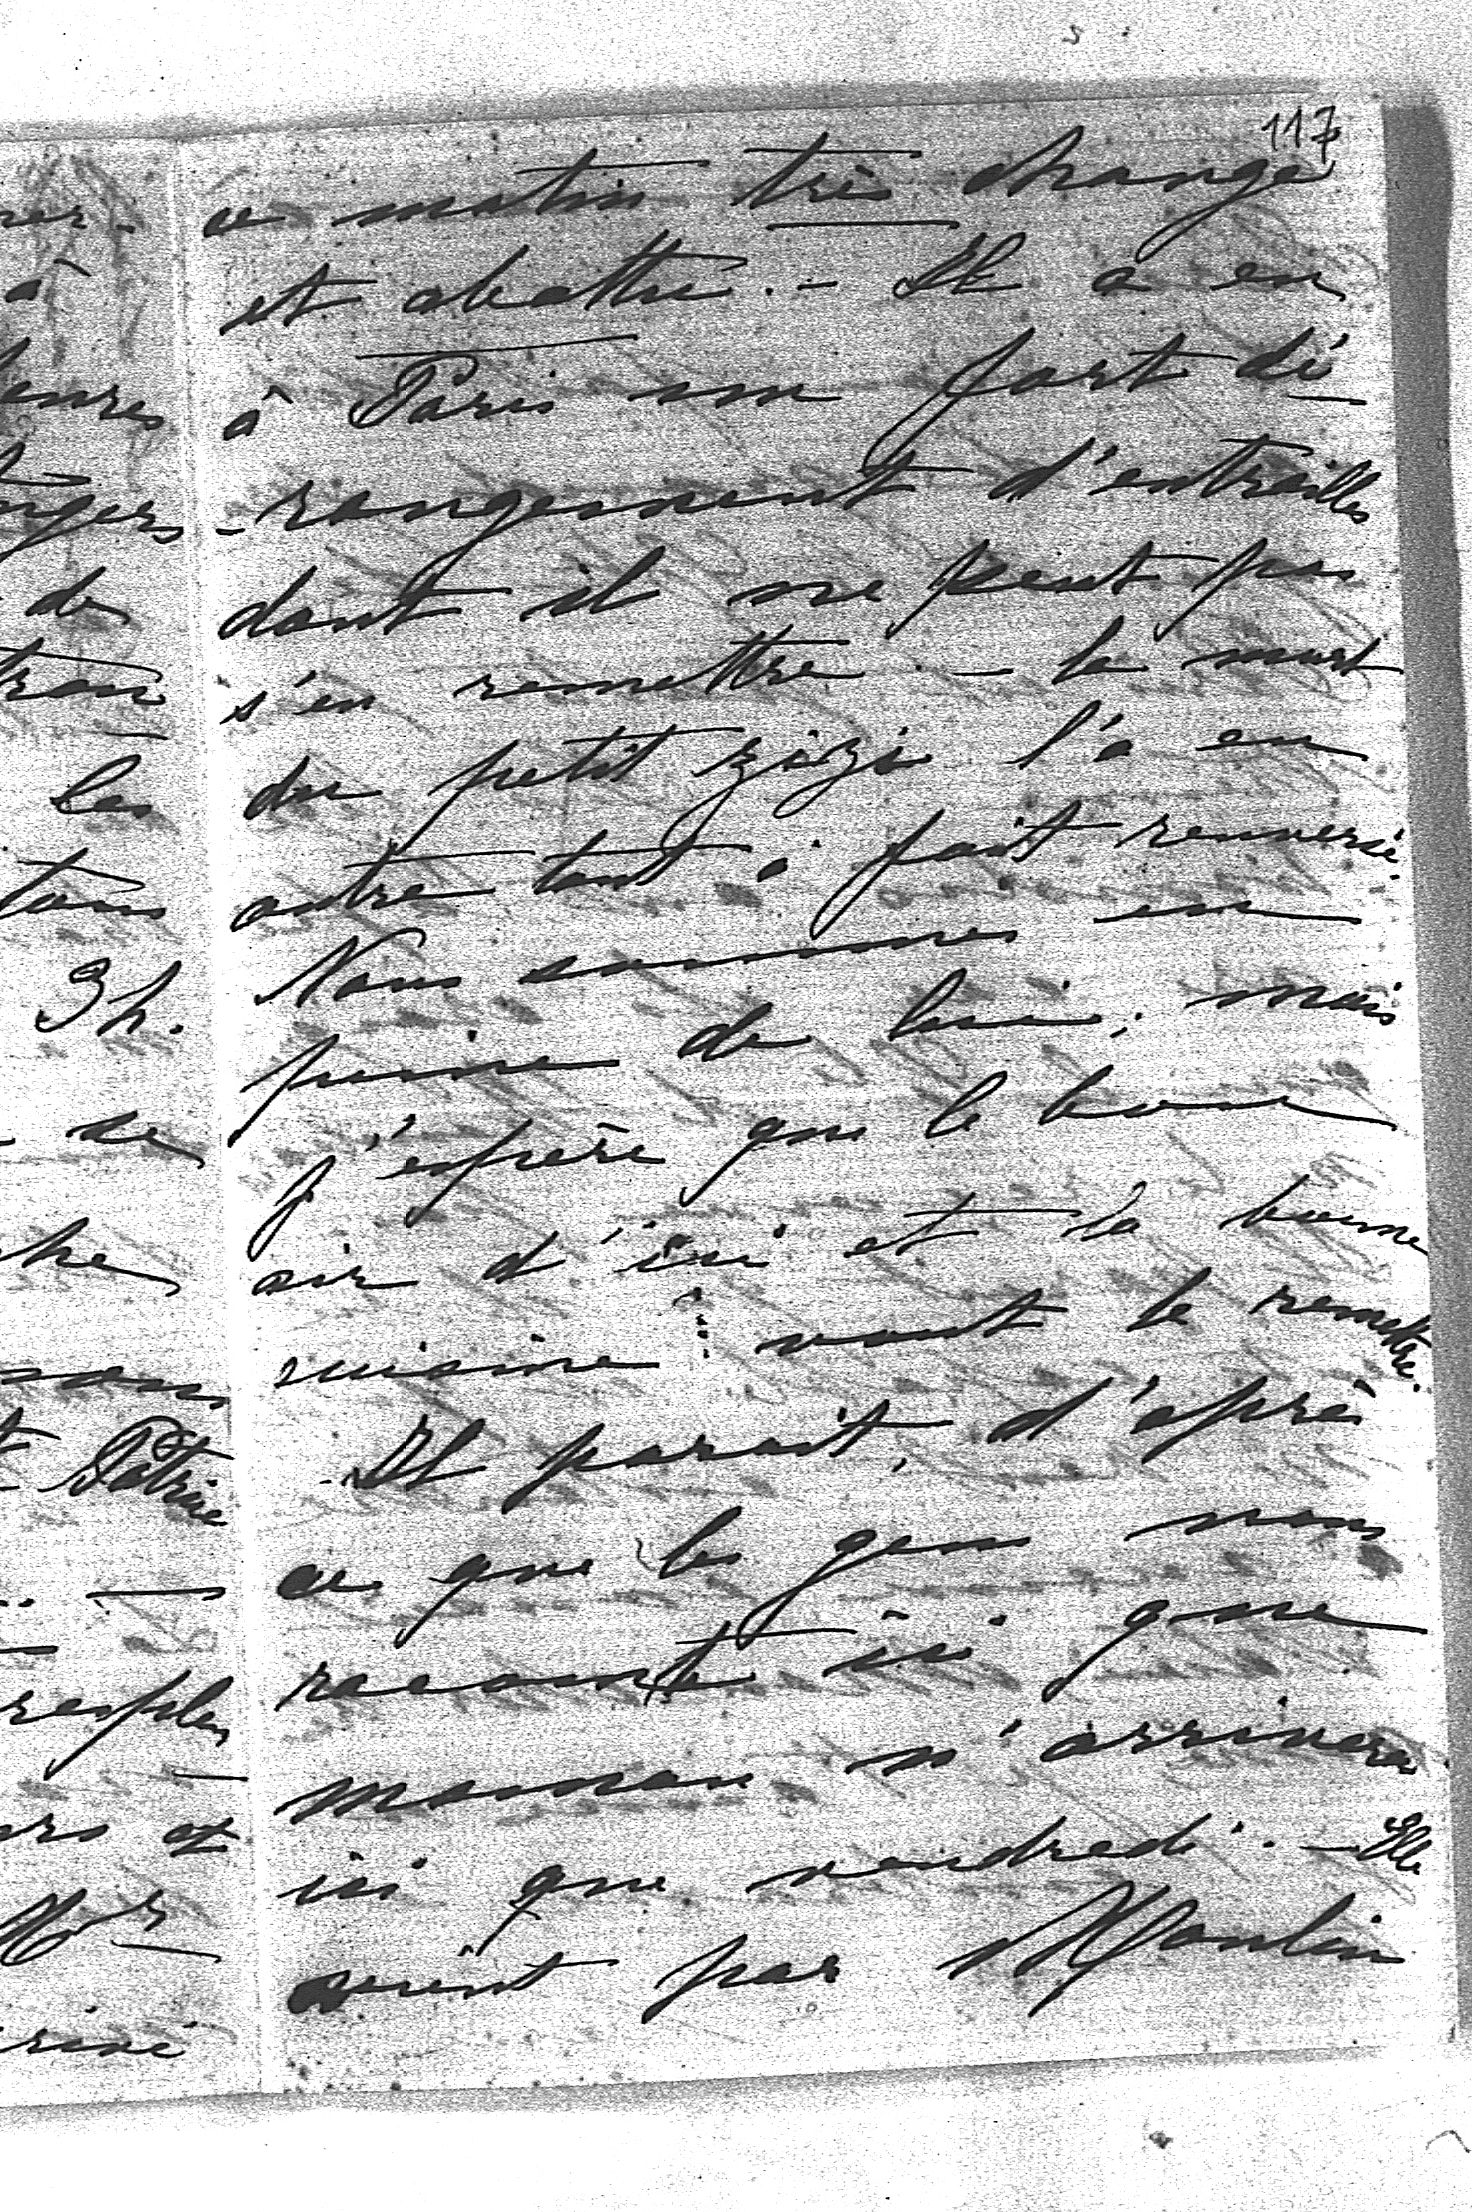 117
ce matin très changé
et abattu. - Il a eu
à Paris un fort dé
-rangement d'entrailles
dont il ne peut pas
s'en remettre - la mort
du petit zizi l'a en
outre tout à fait renversé.
Nous sommes en
peine de lui; mais
j'espère que le bon
air d'ici et la bonne
cuisine vont le remettre.
Il parait, d'après
ce que les gens nous
racontent ici que
maman n'arrivera
ici que vendredi. - Elle
vient par Moulin
à
de
les
3h.
se
Patrie
et
Mr